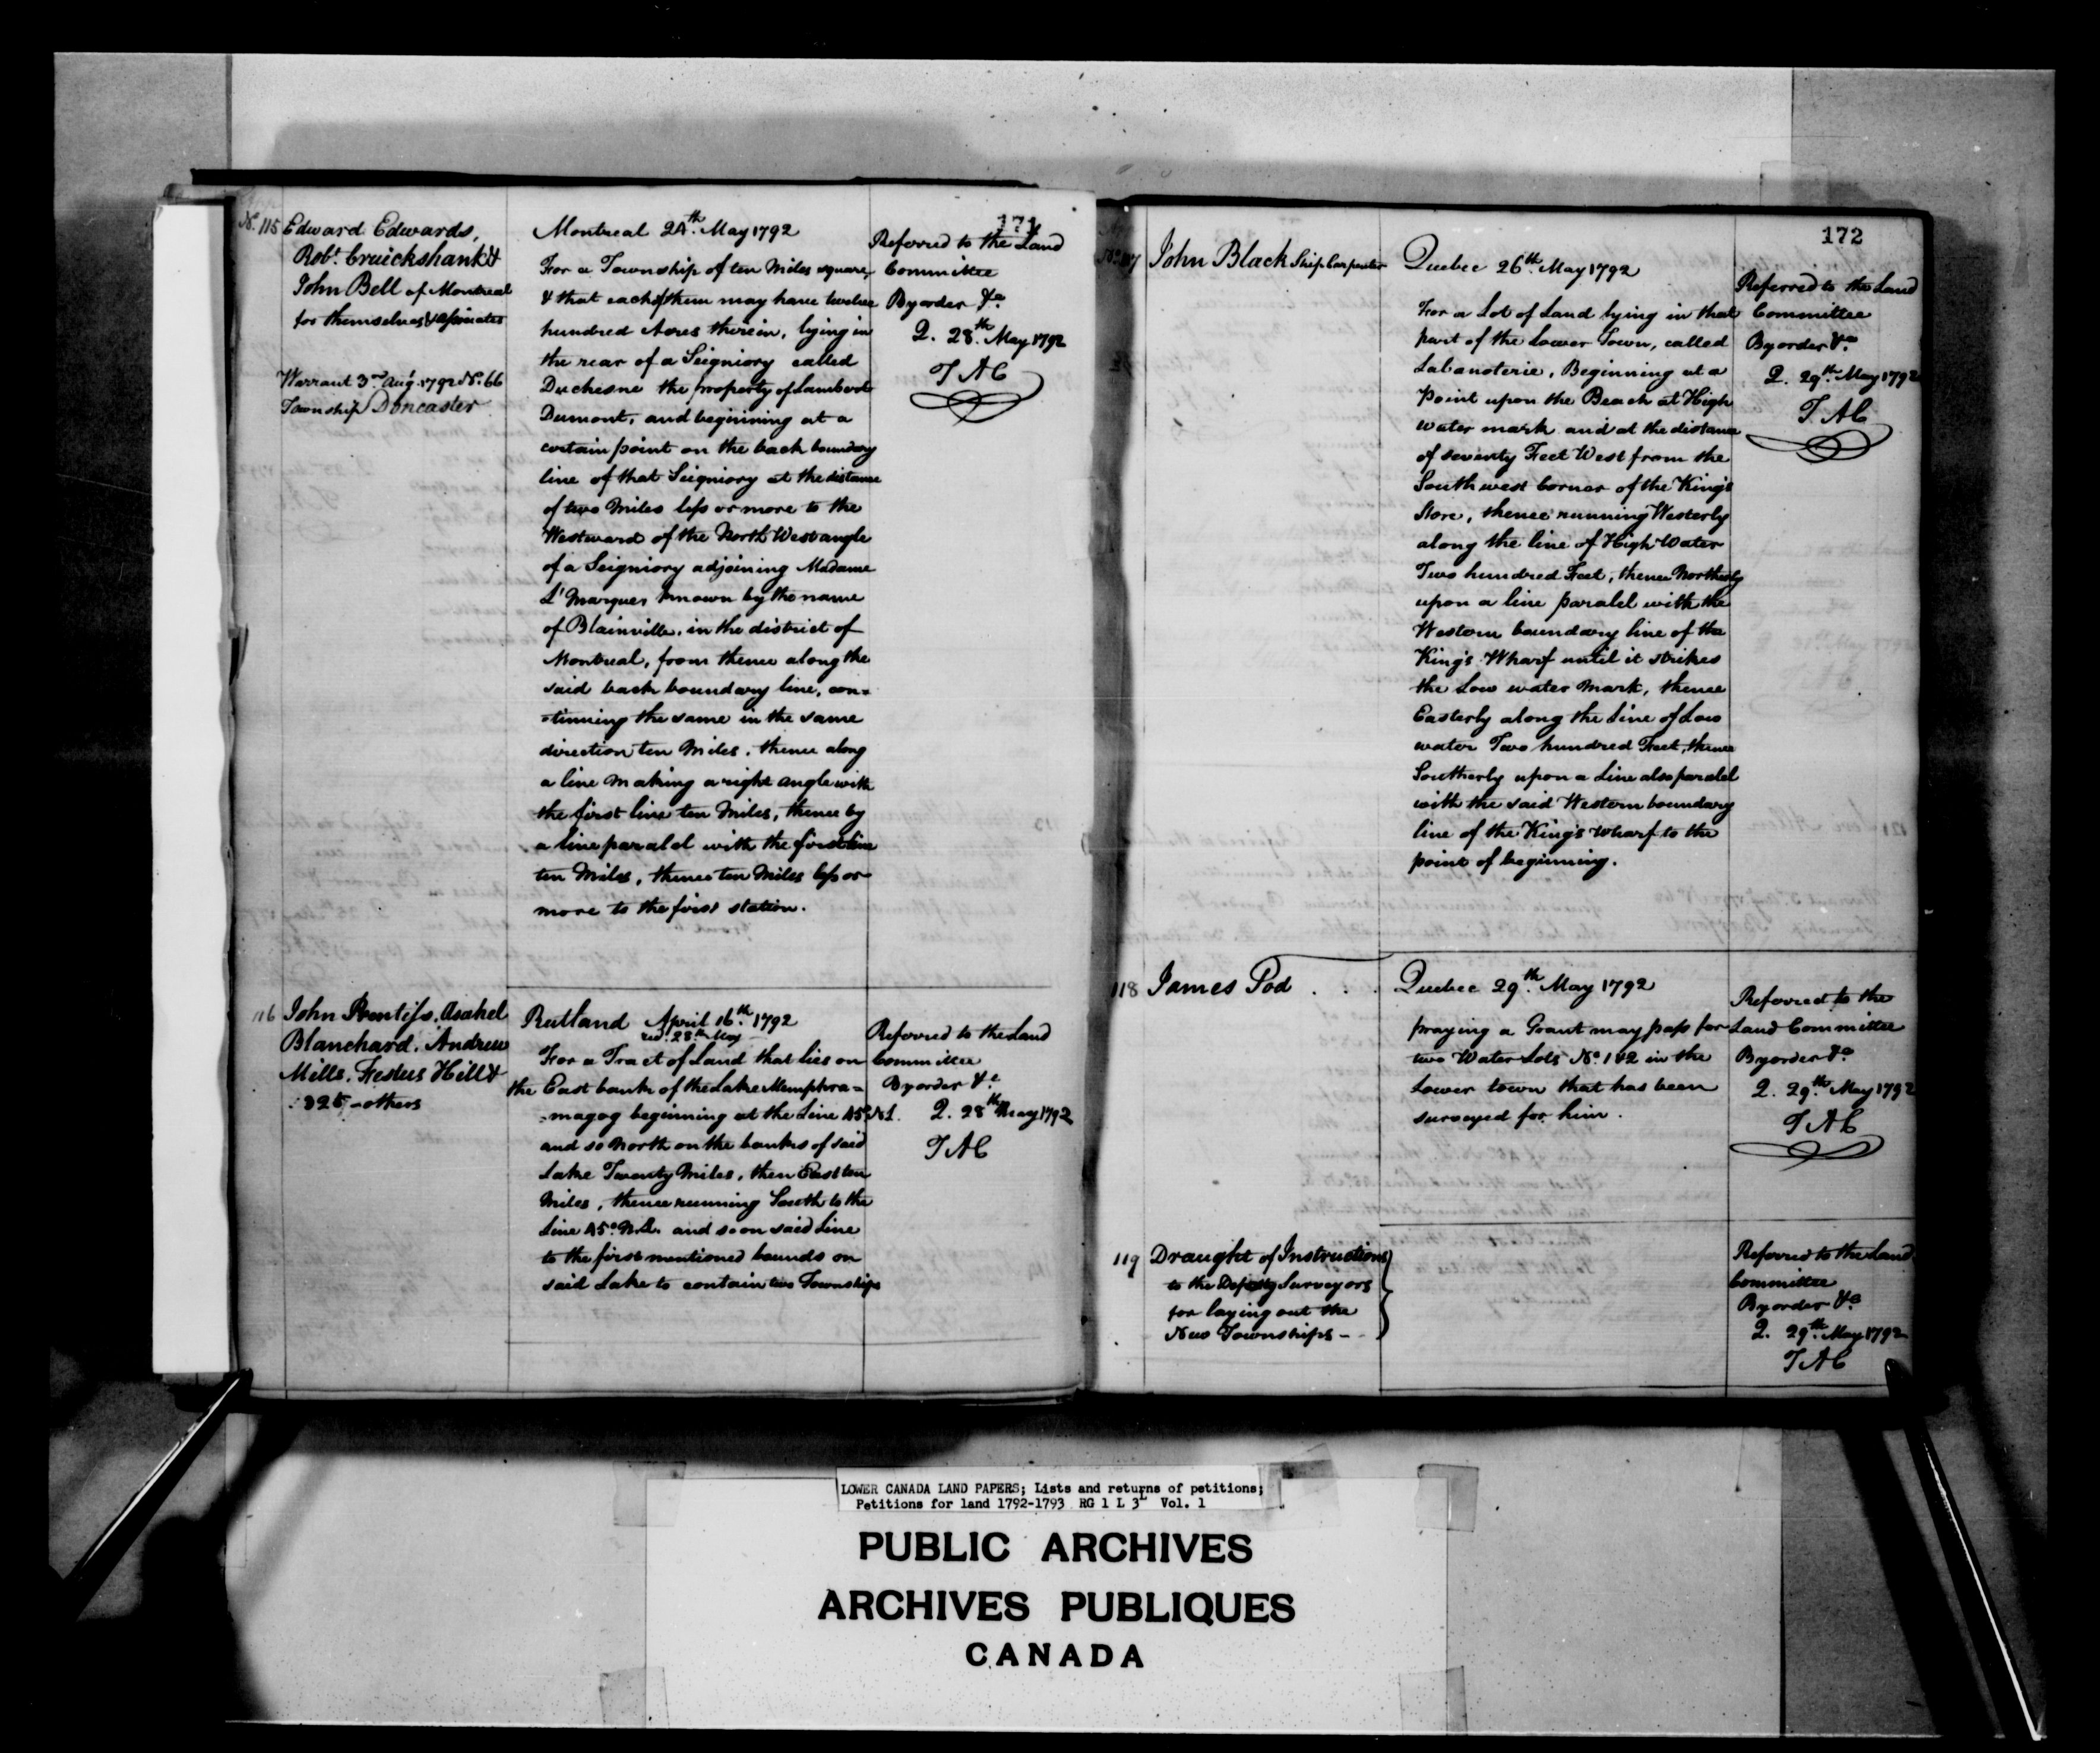 171
No. 115 Edward Edwards,
Robt. Cruickshank &
John Bell of Montreal
for themselves & Associates
Warrant 3rd Augt. 1792 No. 66
Township Doncaster
Montreal 24th. May 1792
For a Township of ten Miles square,
& that each of them may have twelve
hundred Acres therein, lying in
the rear of a Seigniory called
Duchesne the property of Lambert
Dumont, and beginning at a
certain point on the back boundary
line of that Seigniory at the distance
of two Miles less or more to the
Westward of the North West angle
of a Seigniory adjoining Madame
L'Marques known by the name
of Blainville, in the district of
Montreal, from thence along the
said back boundary line, con=
=tinuing the same in the same
direction ten Miles, thence along
a line making a right angle with
the first line ten Miles, thence by
a line paralel with the first line
ten Miles, thence ten Miles less or
more to the first station.
Referred to the Land
Committee
By order &a.
Q. 28th. May 1792
T A C
116 John Prentiss, Asahel
Blanchard, Andrew
Mills, Festus Hill &
325 others
Rutland April 16th. 1792
red. 28th May
For a Tract of Land that lies on
the East bank of the Lake Memphra=
=magog beginning at the Line 45° N L.
and so North on the banks of said
Lake Twenty Miles, then East ten
Miles, thence running South to the
Line 45° N.L. and so on said Line
to the first mentioned bounds on
said Lake to contain two Townships
Referred to the Land
Committee
By order &c.
Q. 28th May 1792
T A C
172
No. 117 John Black Ship Carpenter
Quebec 26th. May 1792
For a Lot of Land lying in that
part of the Lower Town, called
Lacanoterie, Beginning at a
Point upon the Beach at High
water mark and at the distance
of seventy Feet West from the
South west Corner of the King's
Store, thence running Westerly
along the line of High Water
Two hundred Feet, thence Northerly
upon a line paralel with the
Western boundary line of the
King's Wharf until it strikes
the Low water Mark, thence
Easterly along the Line of Low
water Two hundred Feet, thence
Southerly upon a Line also paralel
with the said Western boundary
line of the King's Wharf to the
point of beginning.
Referred to the Land
Committee
By order &a.
Q. 29th. May 1792
T A C
118 James Pod . . .
Quebec 29th. May 1792
praying a Grant may pass for
two Water Lots No. 1 & 2 in the
Lower town that has been
surveyed for him.
Referred to the
Land Committee
By order &a.
Q. 29th. May 1792
T A C
119 Draught of Instructions
to the Deputy Surveyors
for laying out the
New Townships - -
Referred to the Land
Committee
By order &a.
Q. 29th. May 1792
T A C
LOWER CANADA LAND PAPERS; Lists and returns of petitions;
Petitions for land 1792-1793 RG 1 L 3L Vol. 1
PUBLIC ARCHIVES
ARCHIVES PUBLIQUES
CANADA